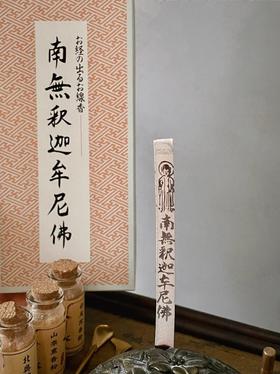 お経の出るお線香
南無釈迦牟尼佛
南無釈迦牟尼佛